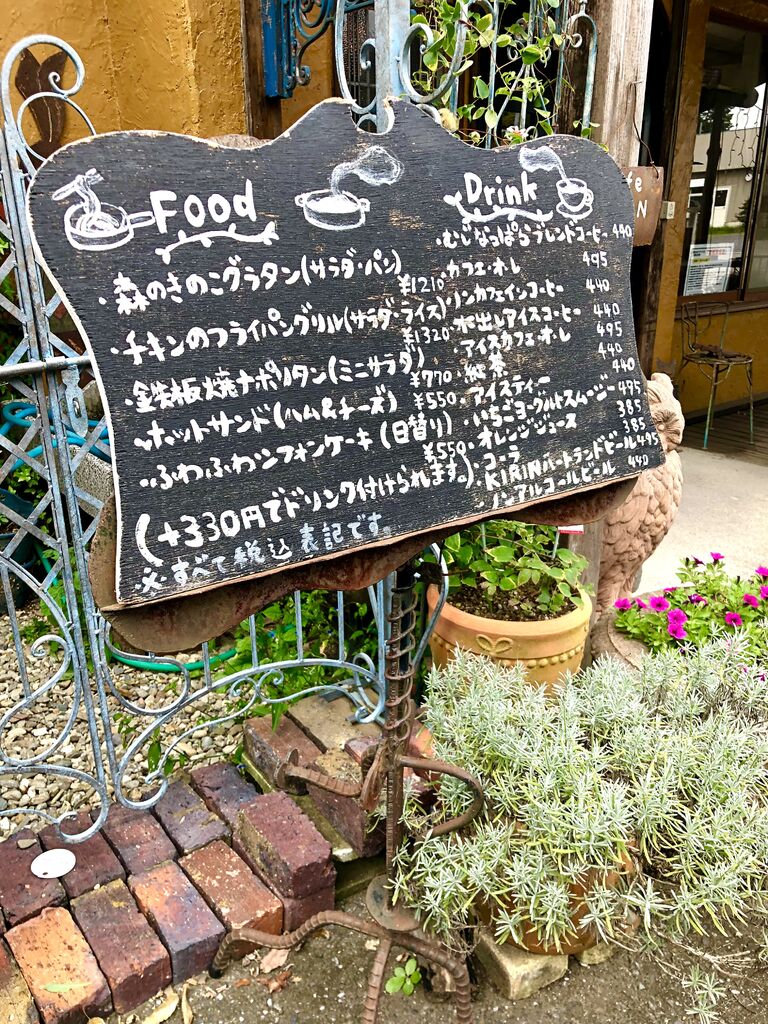 Food
・森のきのこグラタン(サラダ・パン)
¥1210
・チキンのフライパングリル(サラダ・ライス)
¥1320
・鉄板焼ナポリタン(ミニサラダ)
¥770
・ホットサンド(ハム&チーズ)
¥550
・ふわふわシフォンケーキ(日替り)
¥550
(+330円でドリンク付けられます。)
※すべて税込表記です。
Drink
・むじなっぱらブレンドコーヒー 490
・カフェ・オレ 495
・ノンカフェインコーヒー 440
・水出しアイスコーヒー 440
・アイスカフェ・オレ 495
・紅茶 440
・アイスティー 440
・いちごヨーグルトスムージー 495
・オレンジジュース 385
・コーラ 385
・KIRINハートランドビール 495
・ノンアルコールビール 440